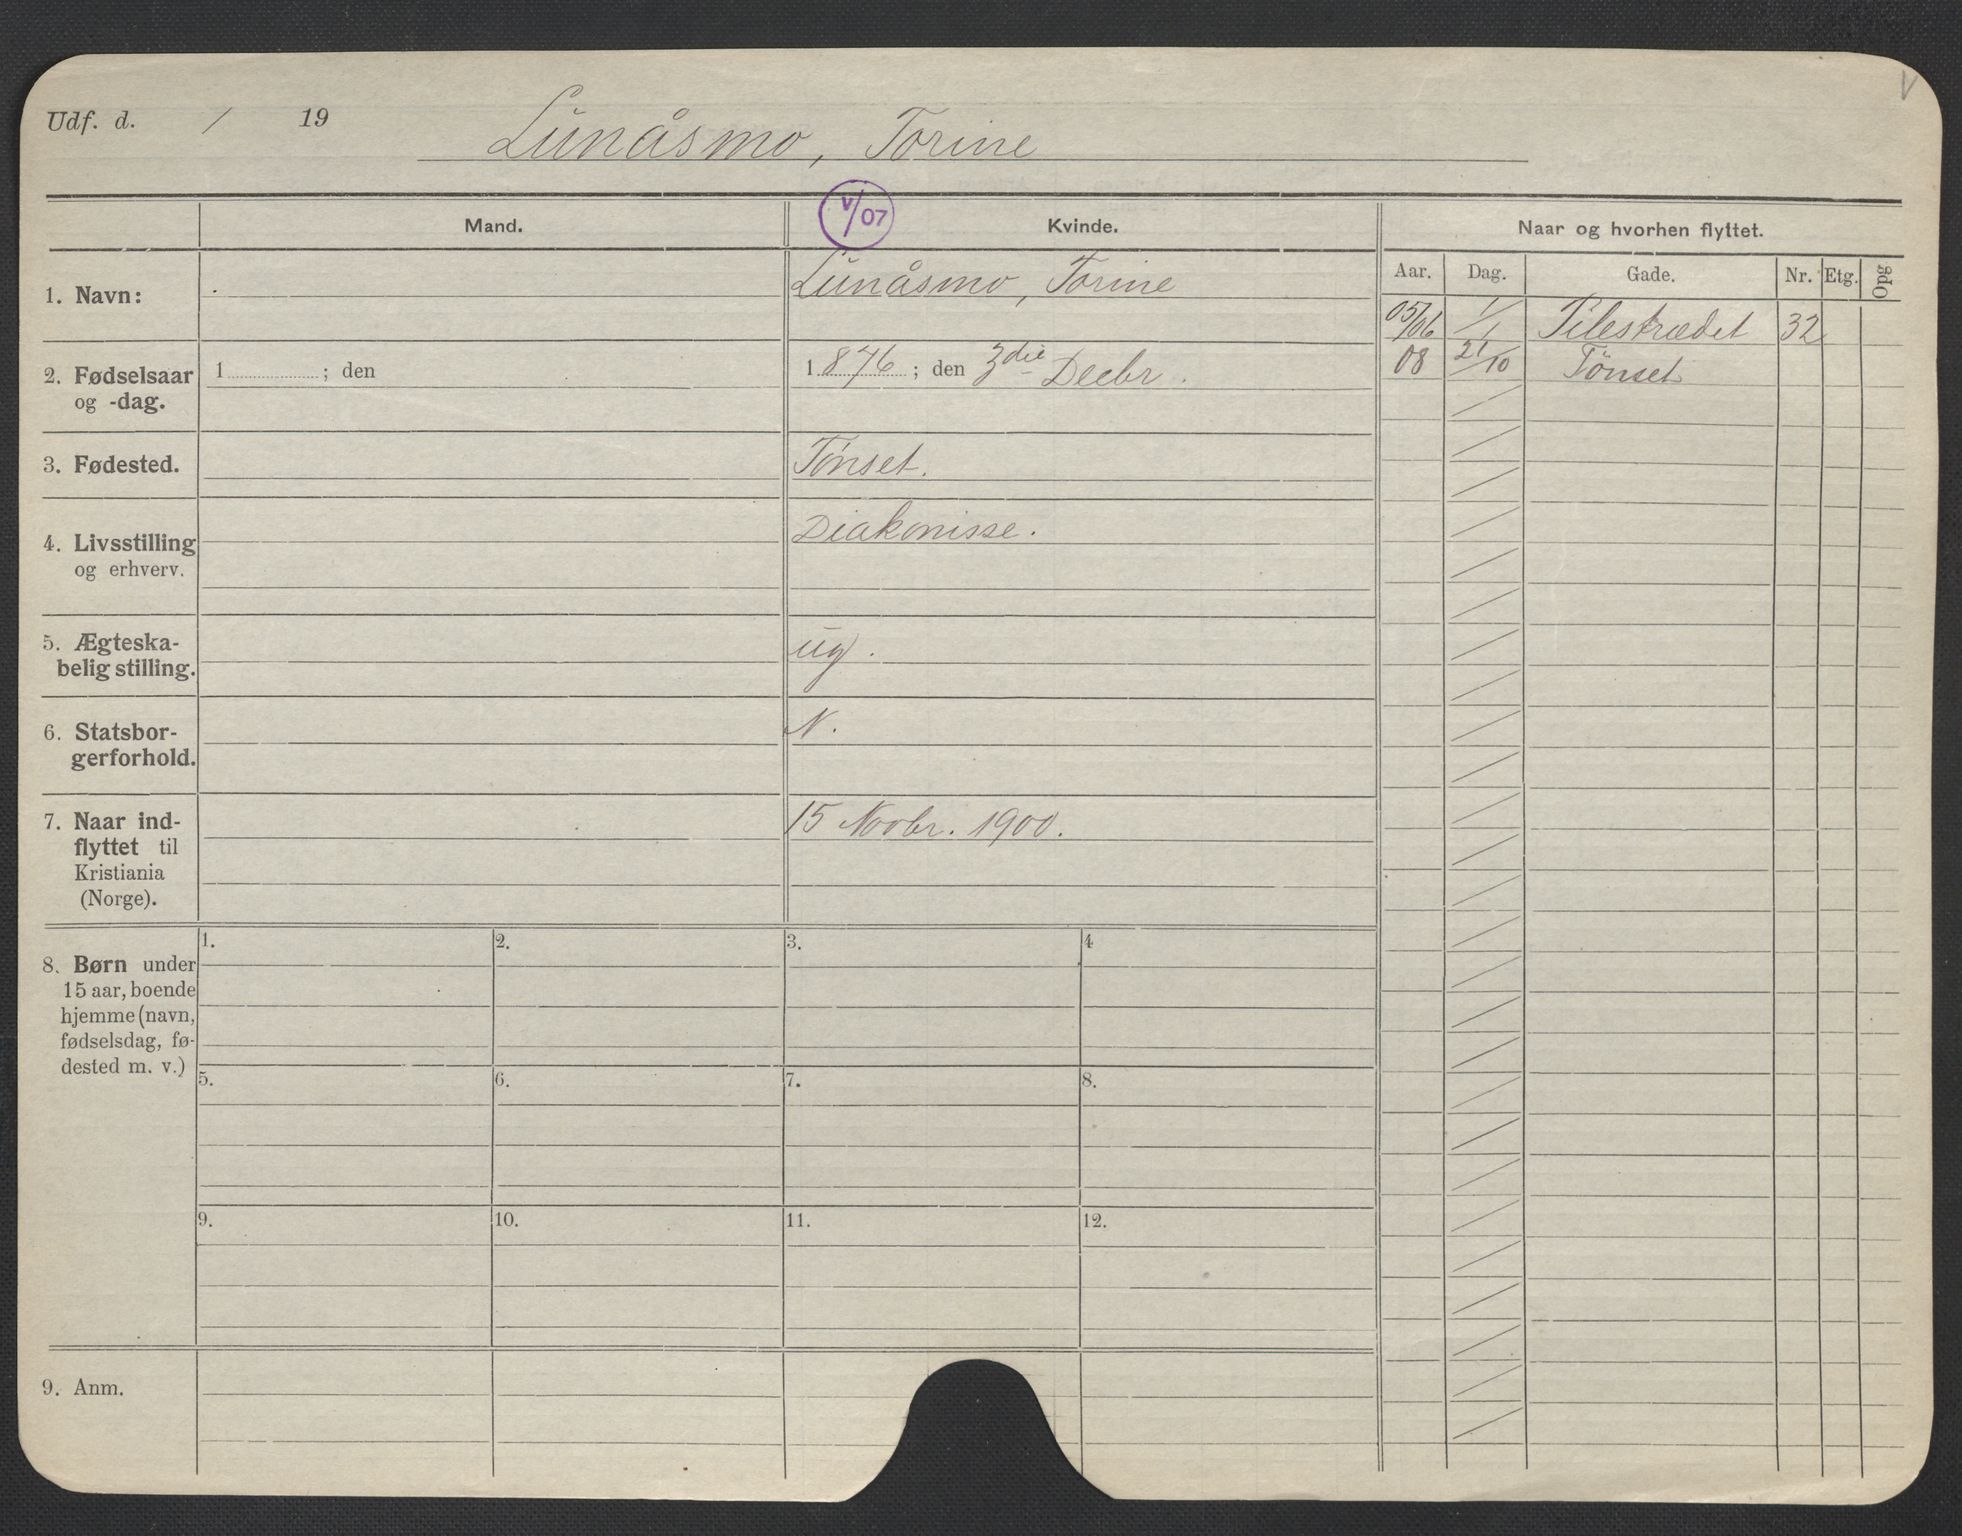 Udf. d. / 19 Lunåsmo, Torine
V
V/07
Mand. Kvinde. Naar og hvorhen flyttet.
Aar. Dag. Gade. Nr. Etg. Opg
1. Navn: Lunåsmo, Torine
05/06 1/1 Pilestrædet 32
08 21/10 Tönset
2. Fødselsaar og -dag. 1 ; den 1 876 ; den 3die Decbr.
3. Fødested. Tönset.
4. Livsstilling og erhverv. Diakonisse.
5. Ægteska-
belig stilling. ug.
6. Statsbor-
gerforhold. N.
7. Naar ind-
flyttet til
Kristiania
(Norge). 15 Novbr. 1900.
8. Børn under
15 aar, boende
hjemme (navn,
fødselsdag, fø-
dested m. v.)
1. 2. 3. 4
5. 6. 7. 8.
9. 10. 11. 12.
9. Anm.